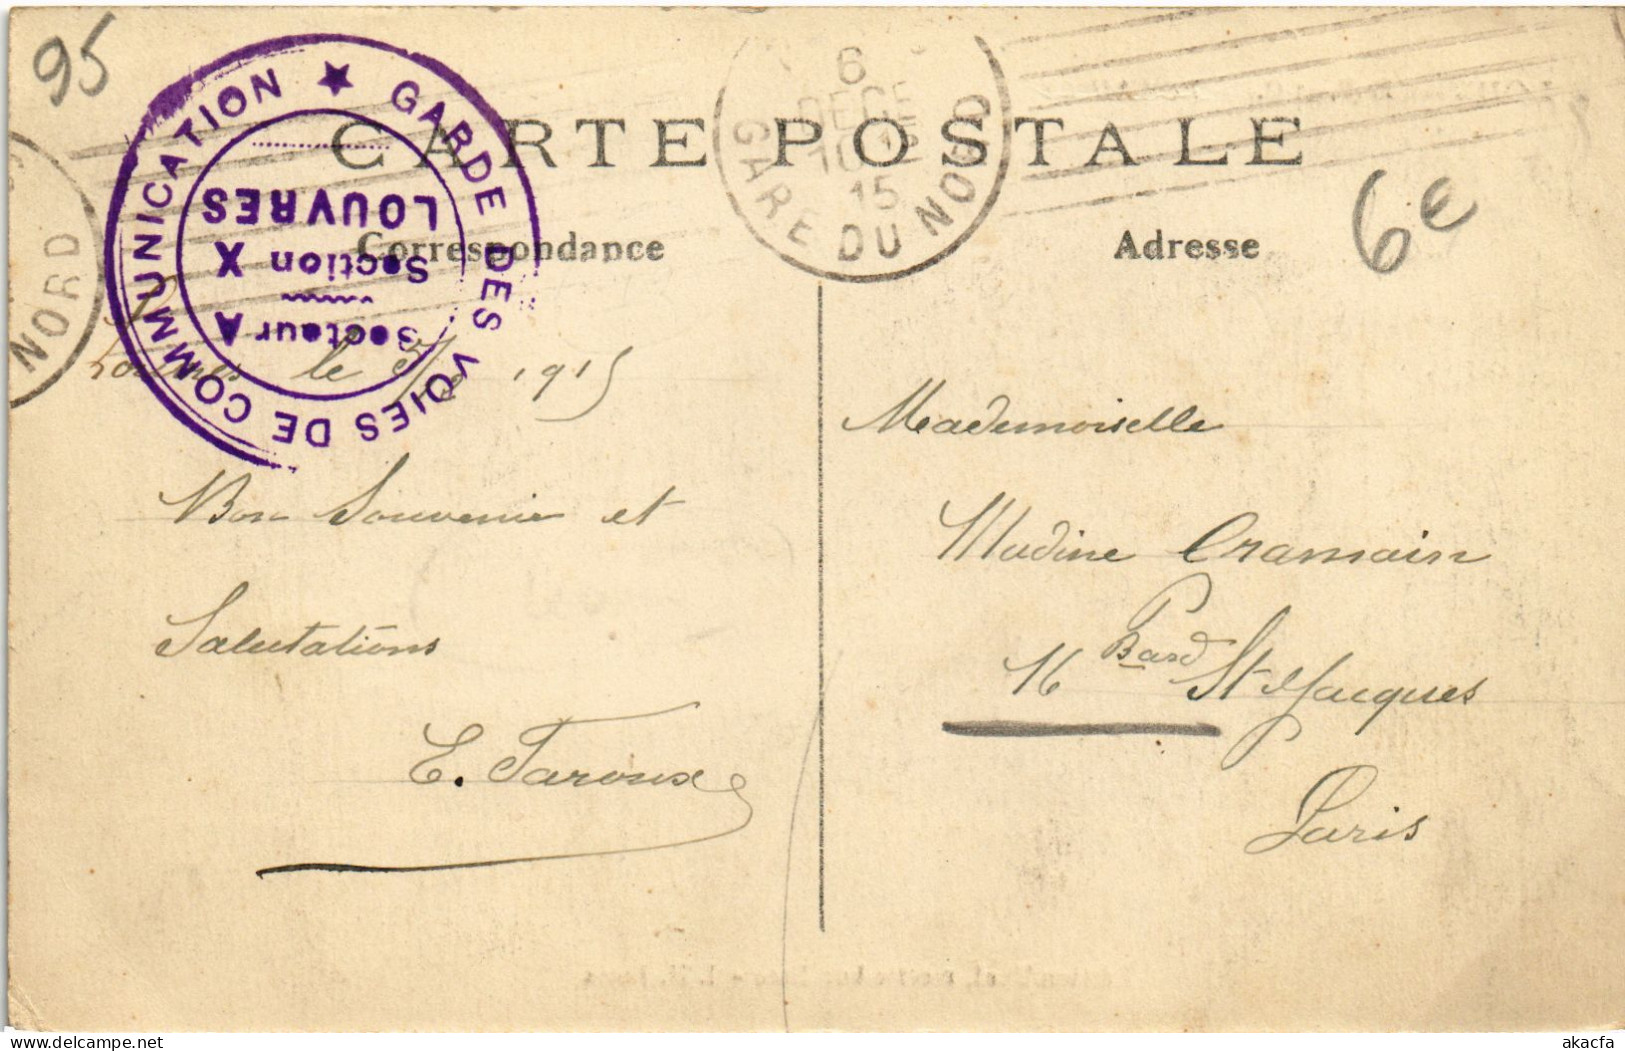 95
CARTE POSTALE
Correspondance
Adresse
6e
GARDE DES VOIES DE COMMUNICATION ★
LOUVRES
Section X
Secteur A
6
DECE
15
GARE DU NORD
NORD
Louvres le 5/12 1915
Bon Souvenir et
Salutations
E. Taroux
Mademoiselle
Madine Cramain
16 Bard St Jacques
Paris
akpool.co.uk